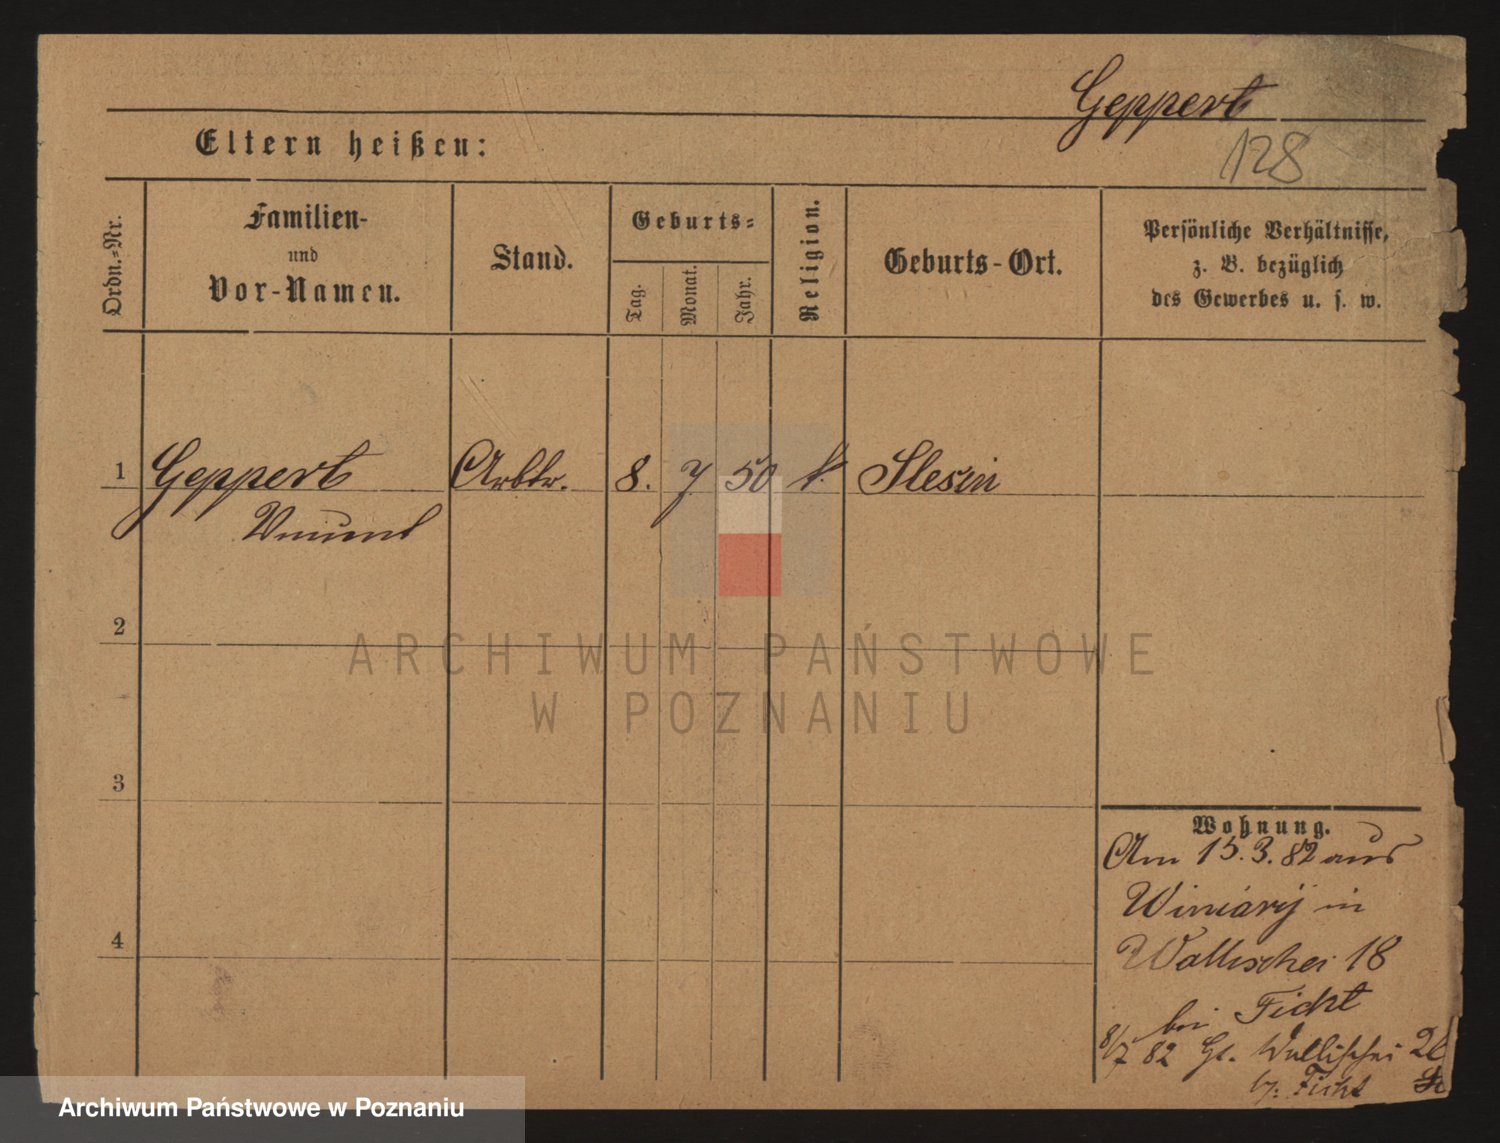 Geppert
128
Eltern heißen:
Ordn.-Nr.
Familien-
und
Vor-Namen.
Stand.
Geburts-
Tag.
Monat.
Jahr.
Religion.
Geburts-Ort.
Persönliche Verhältnisse,
z. B. bezüglich
des Gewerbes u. s. w.
1 Geppert Arbtr. 8. 7 50 k. Slesin
2
3
4
Wohnung.
Am 15.3.82 aus
Winiary in
Wallischei 18
bei Ficht
8/7 82 Wallischei
by. Ficht
ARCHIWUM PAŃSTWOWE
W POZNANIU
Archiwum Państwowe w Poznaniu